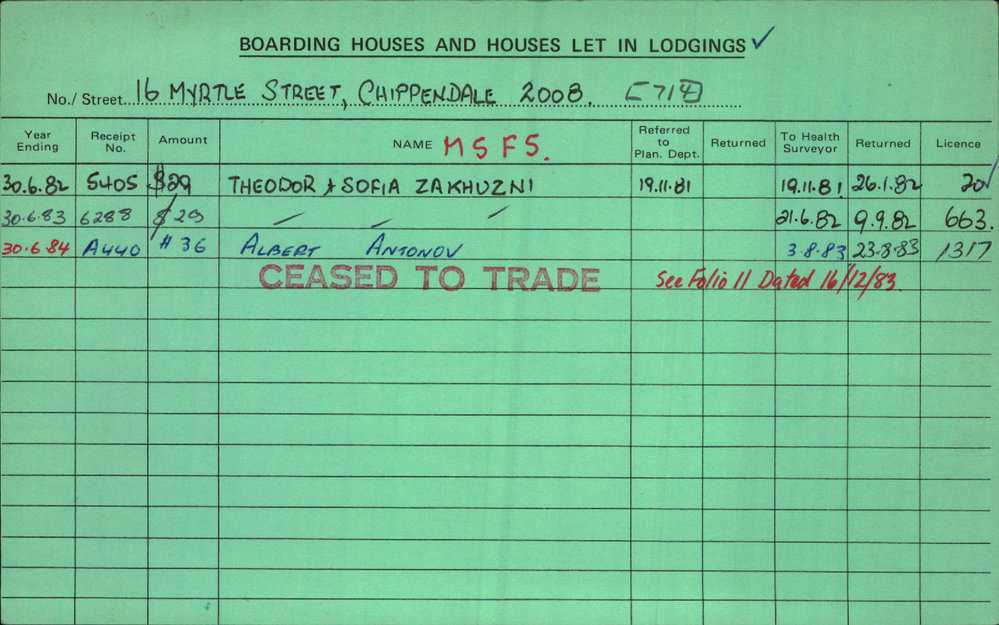 BOARDING HOUSES AND HOUSES LET IN LODGINGS ✓
No./ Street 16 MYRTLE STREET, CHIPPENDALE 2008.
Year Ending Receipt No. Amount NAME M S F 5. Referred to Plan. Dept. Returned To Health Surveyor Returned Licence
30.6.82 5405 $29 THEODOR & SOFIA ZAKHUZNI 19.11.81 19.11.81 26.1.82 20 ✓
30.6.83 6288 $29 — — — 21.6.82 9.9.82 663.
30.6.84 A440 # 36 ALBERT ANTONOV 3.8.83 23.8.83 1317
CEASED TO TRADE See Folio 11 Dated 16/12/83.